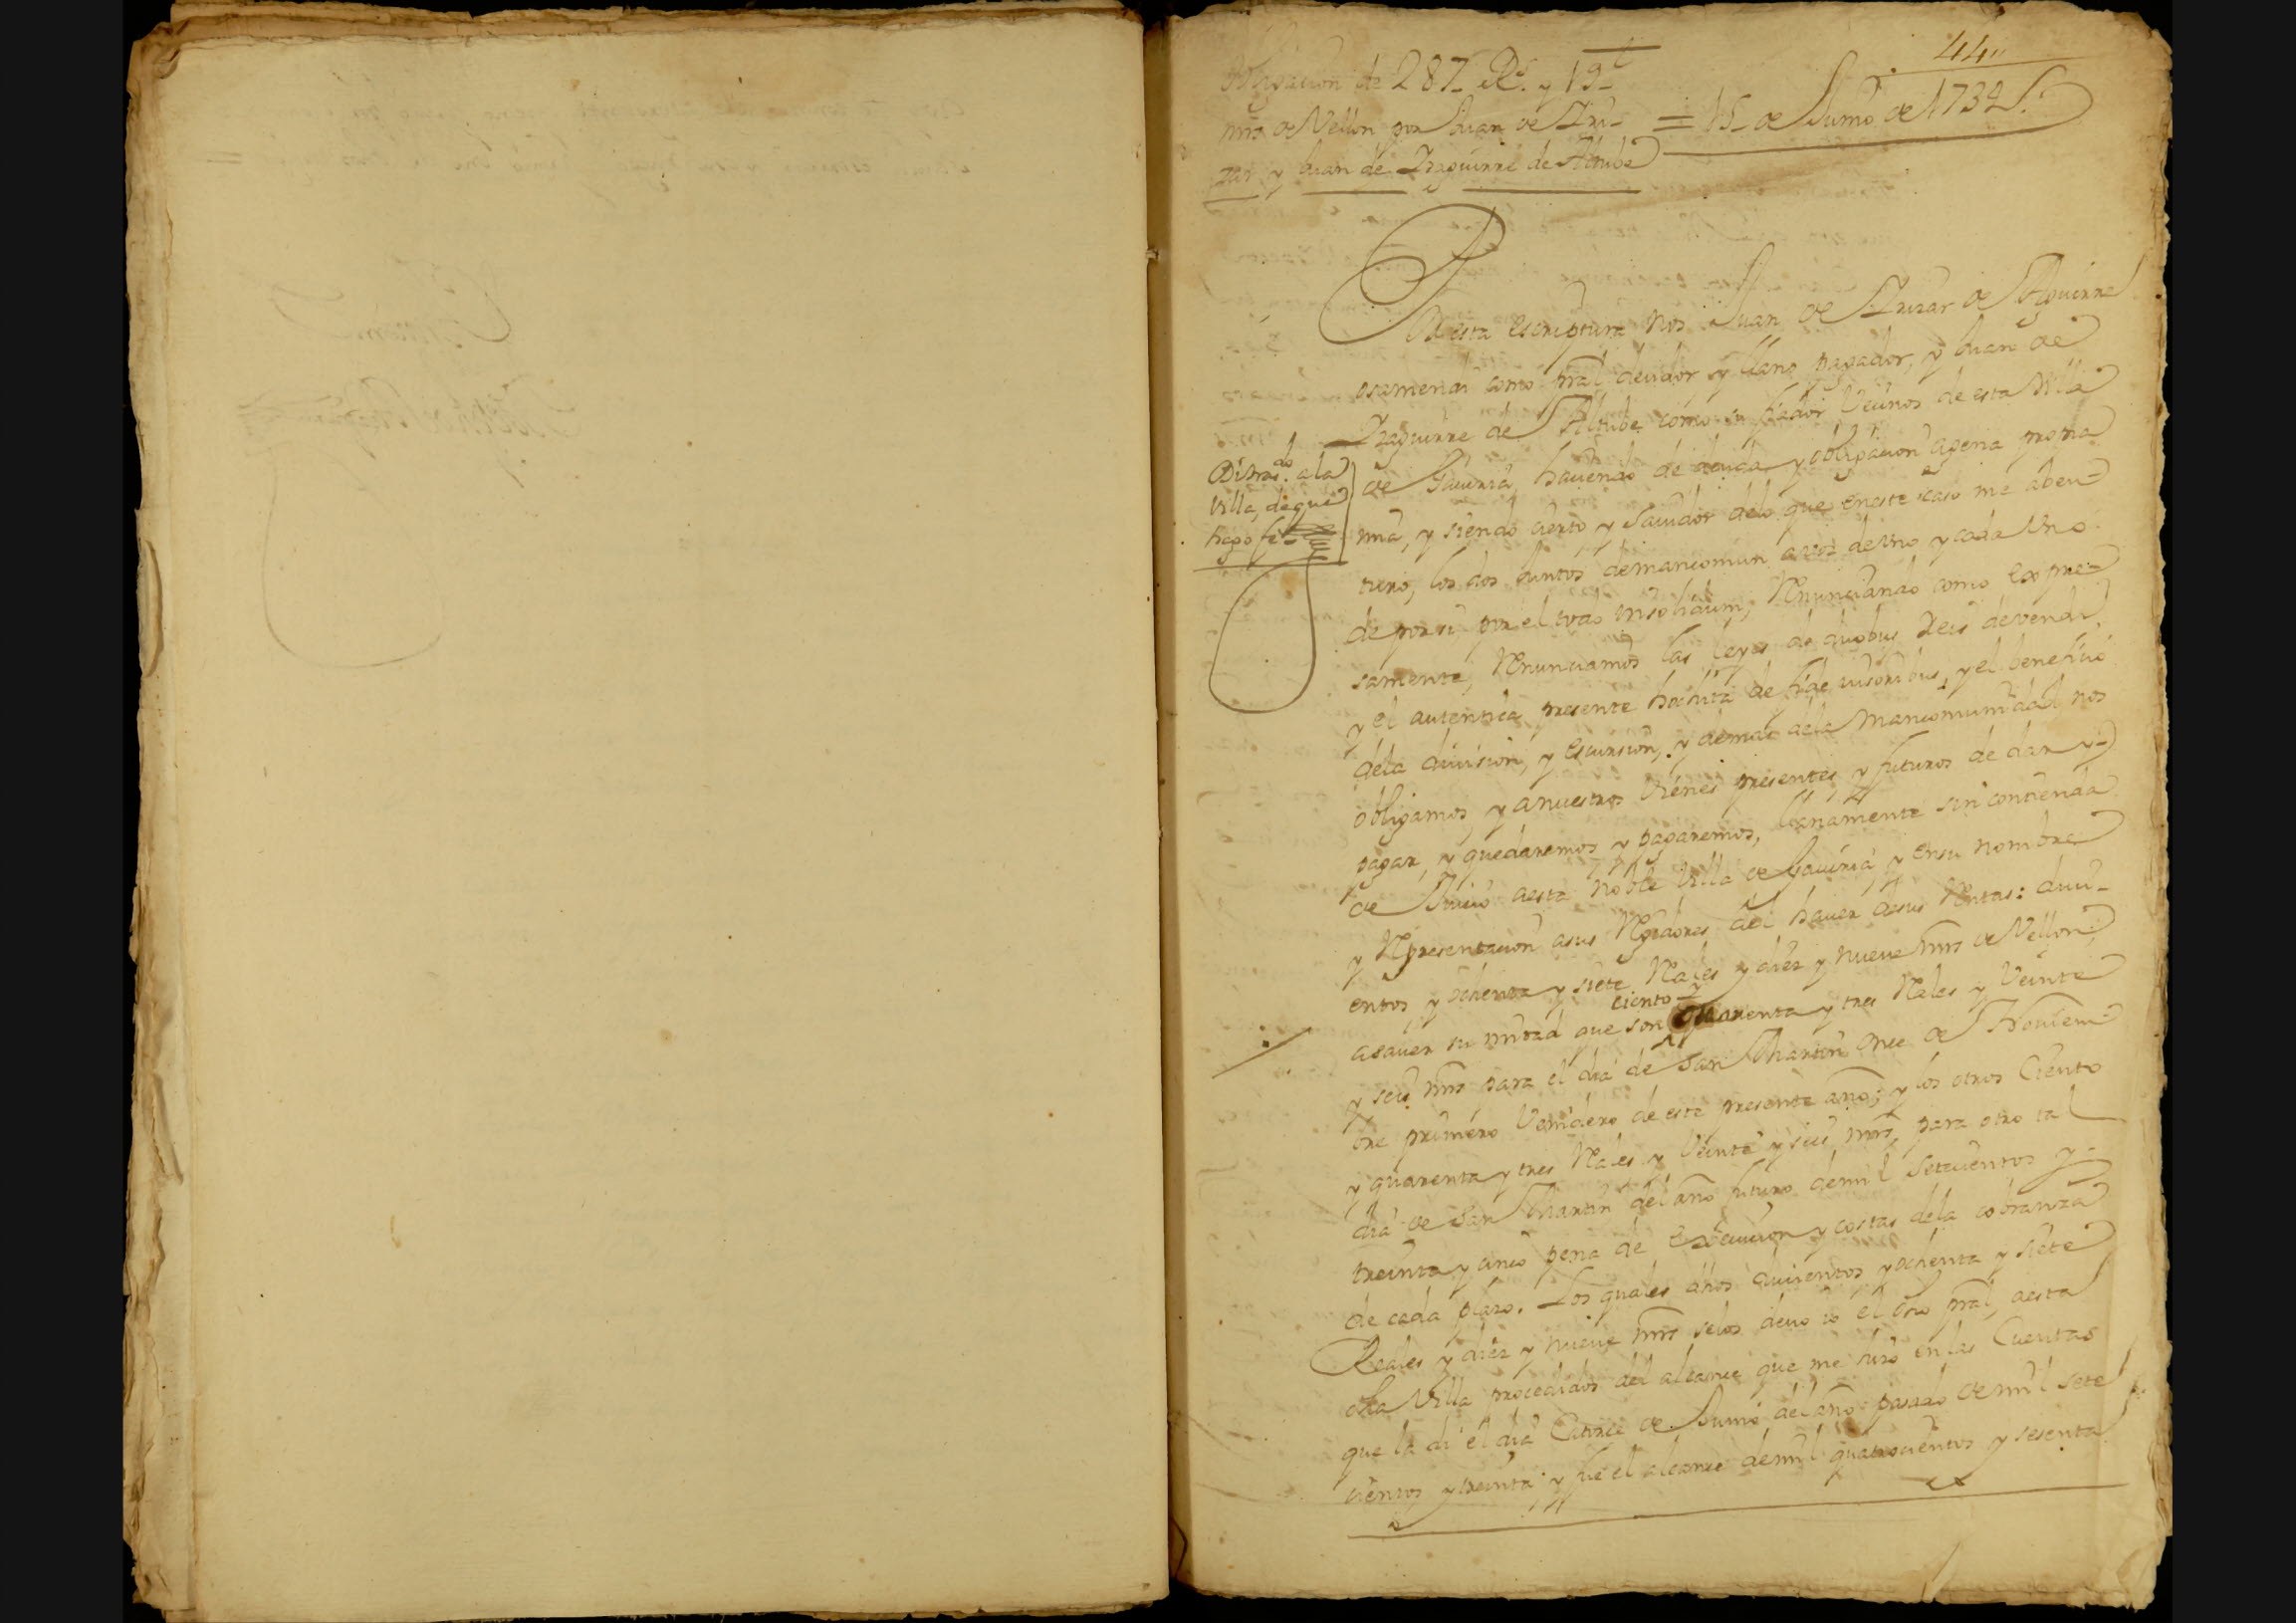 44
Obligacion de 287 Rs. y 19
mrs de Vellon por Juan de Iri-
zar y Juan de Yzaguirre de Altube
= 15 de Junio de 1734
Por esta escriptura nos Juan de Yrizar de Aguirre
osamendi como pral deudor y llano pagador, y Juan de
Yzaguirre de Altube como su fiador Vecinos de esta Villa
de Gaviria, haciendo de deuda y obligacion agena propia
mia, y siendo cierto y savidor delo que eneste caso me aben-
turo, los dos Juntos demancomun a voz de Uno y cada Uno
de por si por el todo insolidum, Renunciando como expre-
samente, Renunciamos las leyes de duobus Reis devendi,
y el autentica presente hochita de fide iusoribus, y el beneficio
dela division, y escursion, y demas dela mancomunidad nos
obligamos, y anuestros Vienes presentes y futuros de dar y
pagar, y quedaremos y pagaremos, llanamente sin contienda
de Juicio aesta noble Villa de Gaviria, y ensu nombre
y Representacion asus Regidores del haver desus Rentas: duci-
entos, y ochenta y siete Reales y diez y nueve mrs de Vellon;
asaver su mitad que son ciento y quarenta y tres Reales y Veinte
y seis mrs para el dia de San Martin once de Noviem-
bre primero Venidero de este presente año; y los otros Ciento
y quarenta y tres Reales y Veinte y seis mrs, para otro tal
dia de San Martin del año futuro demil Setecientos y
treinta y cinco pena de Execucion y costas dela cobranza
de cada plazo. Los quales dhos ducientos y ochenta y siete
Reales y diez y nueve mrs selos devo io el dho pral, aesta
dha Villa procedidos del alcance que me hizo en las Cuentas
que la di el dia Catorce de Junio del año pasado de mil sete
cientos y treinta; y fue el alcance demil quatrocientos y sesenta
Di tras.do a la
Villa, de que
hago fe